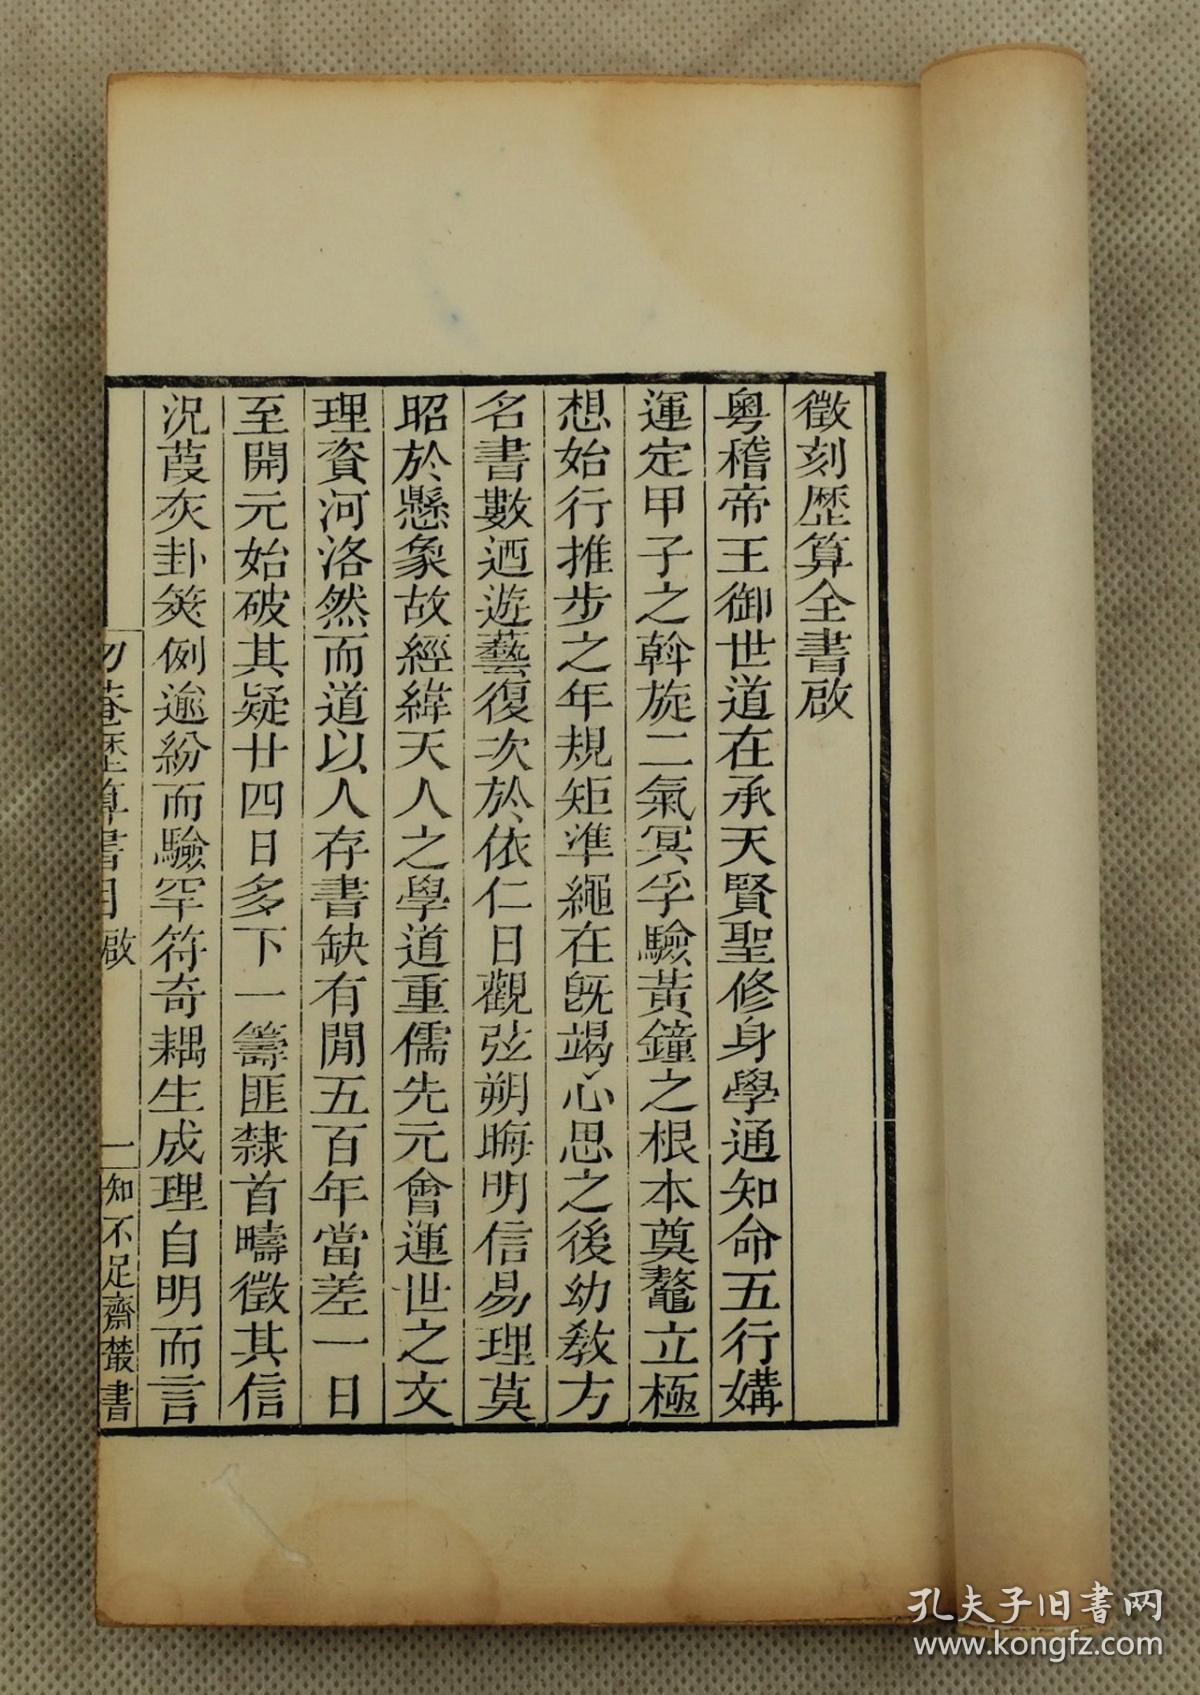 徵刻歴算全書啟
粤稽帝王御世道在承天賢聖修身學通知命五行媾
運定甲子之斡旋二氣冥孚驗黃鐘之根本奠鼇立極
想始行推步之年規矩準繩在旣竭心思之後幼教方
名書數迺遊藝復次於依仁日觀弦朔晦明信易理莫
昭於懸象故經緯天人之學道重儒先元會運世之文
理資河洛然而道以人存書缺有閒五百年當差一日
至開元始破其疑廿四日多下一籌匪隸首疇徵其信
況葭灰卦筴例逾紛而驗罕符奇耦生成理自明而言
勿菴歴算書目 啟
一
知不足齋叢書
孔夫子旧書网
www.kongfz.com